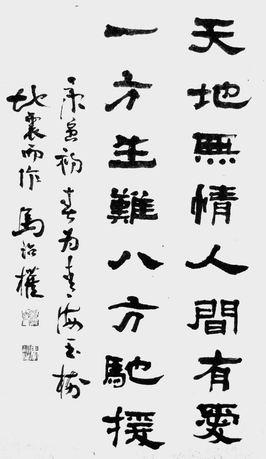 天地無情人間有愛
一方生難八方馳援
庚寅初春為青海玉樹
地震而作 馬治權